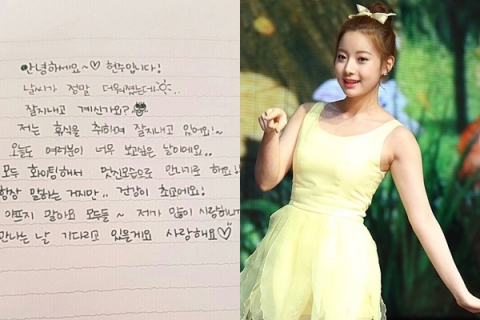 안녕하세요~♡ 현주입니다!
날씨가 정말 더워졌는데..
잘지내고 계신가요?
저는 휴식을 취하며 잘지내고 있어요!
오늘도 여러분이 너무 보고싶은 날이네요..
모두 화이팅해서 멋진모습으로 만나기로 해요!
항상 말하는 거지만.. 건강이 최고에요!
아프지 말아요 모두들~ 저가 많이 사랑하니
만나는 날 기다리고 있을게요 사랑해요♡